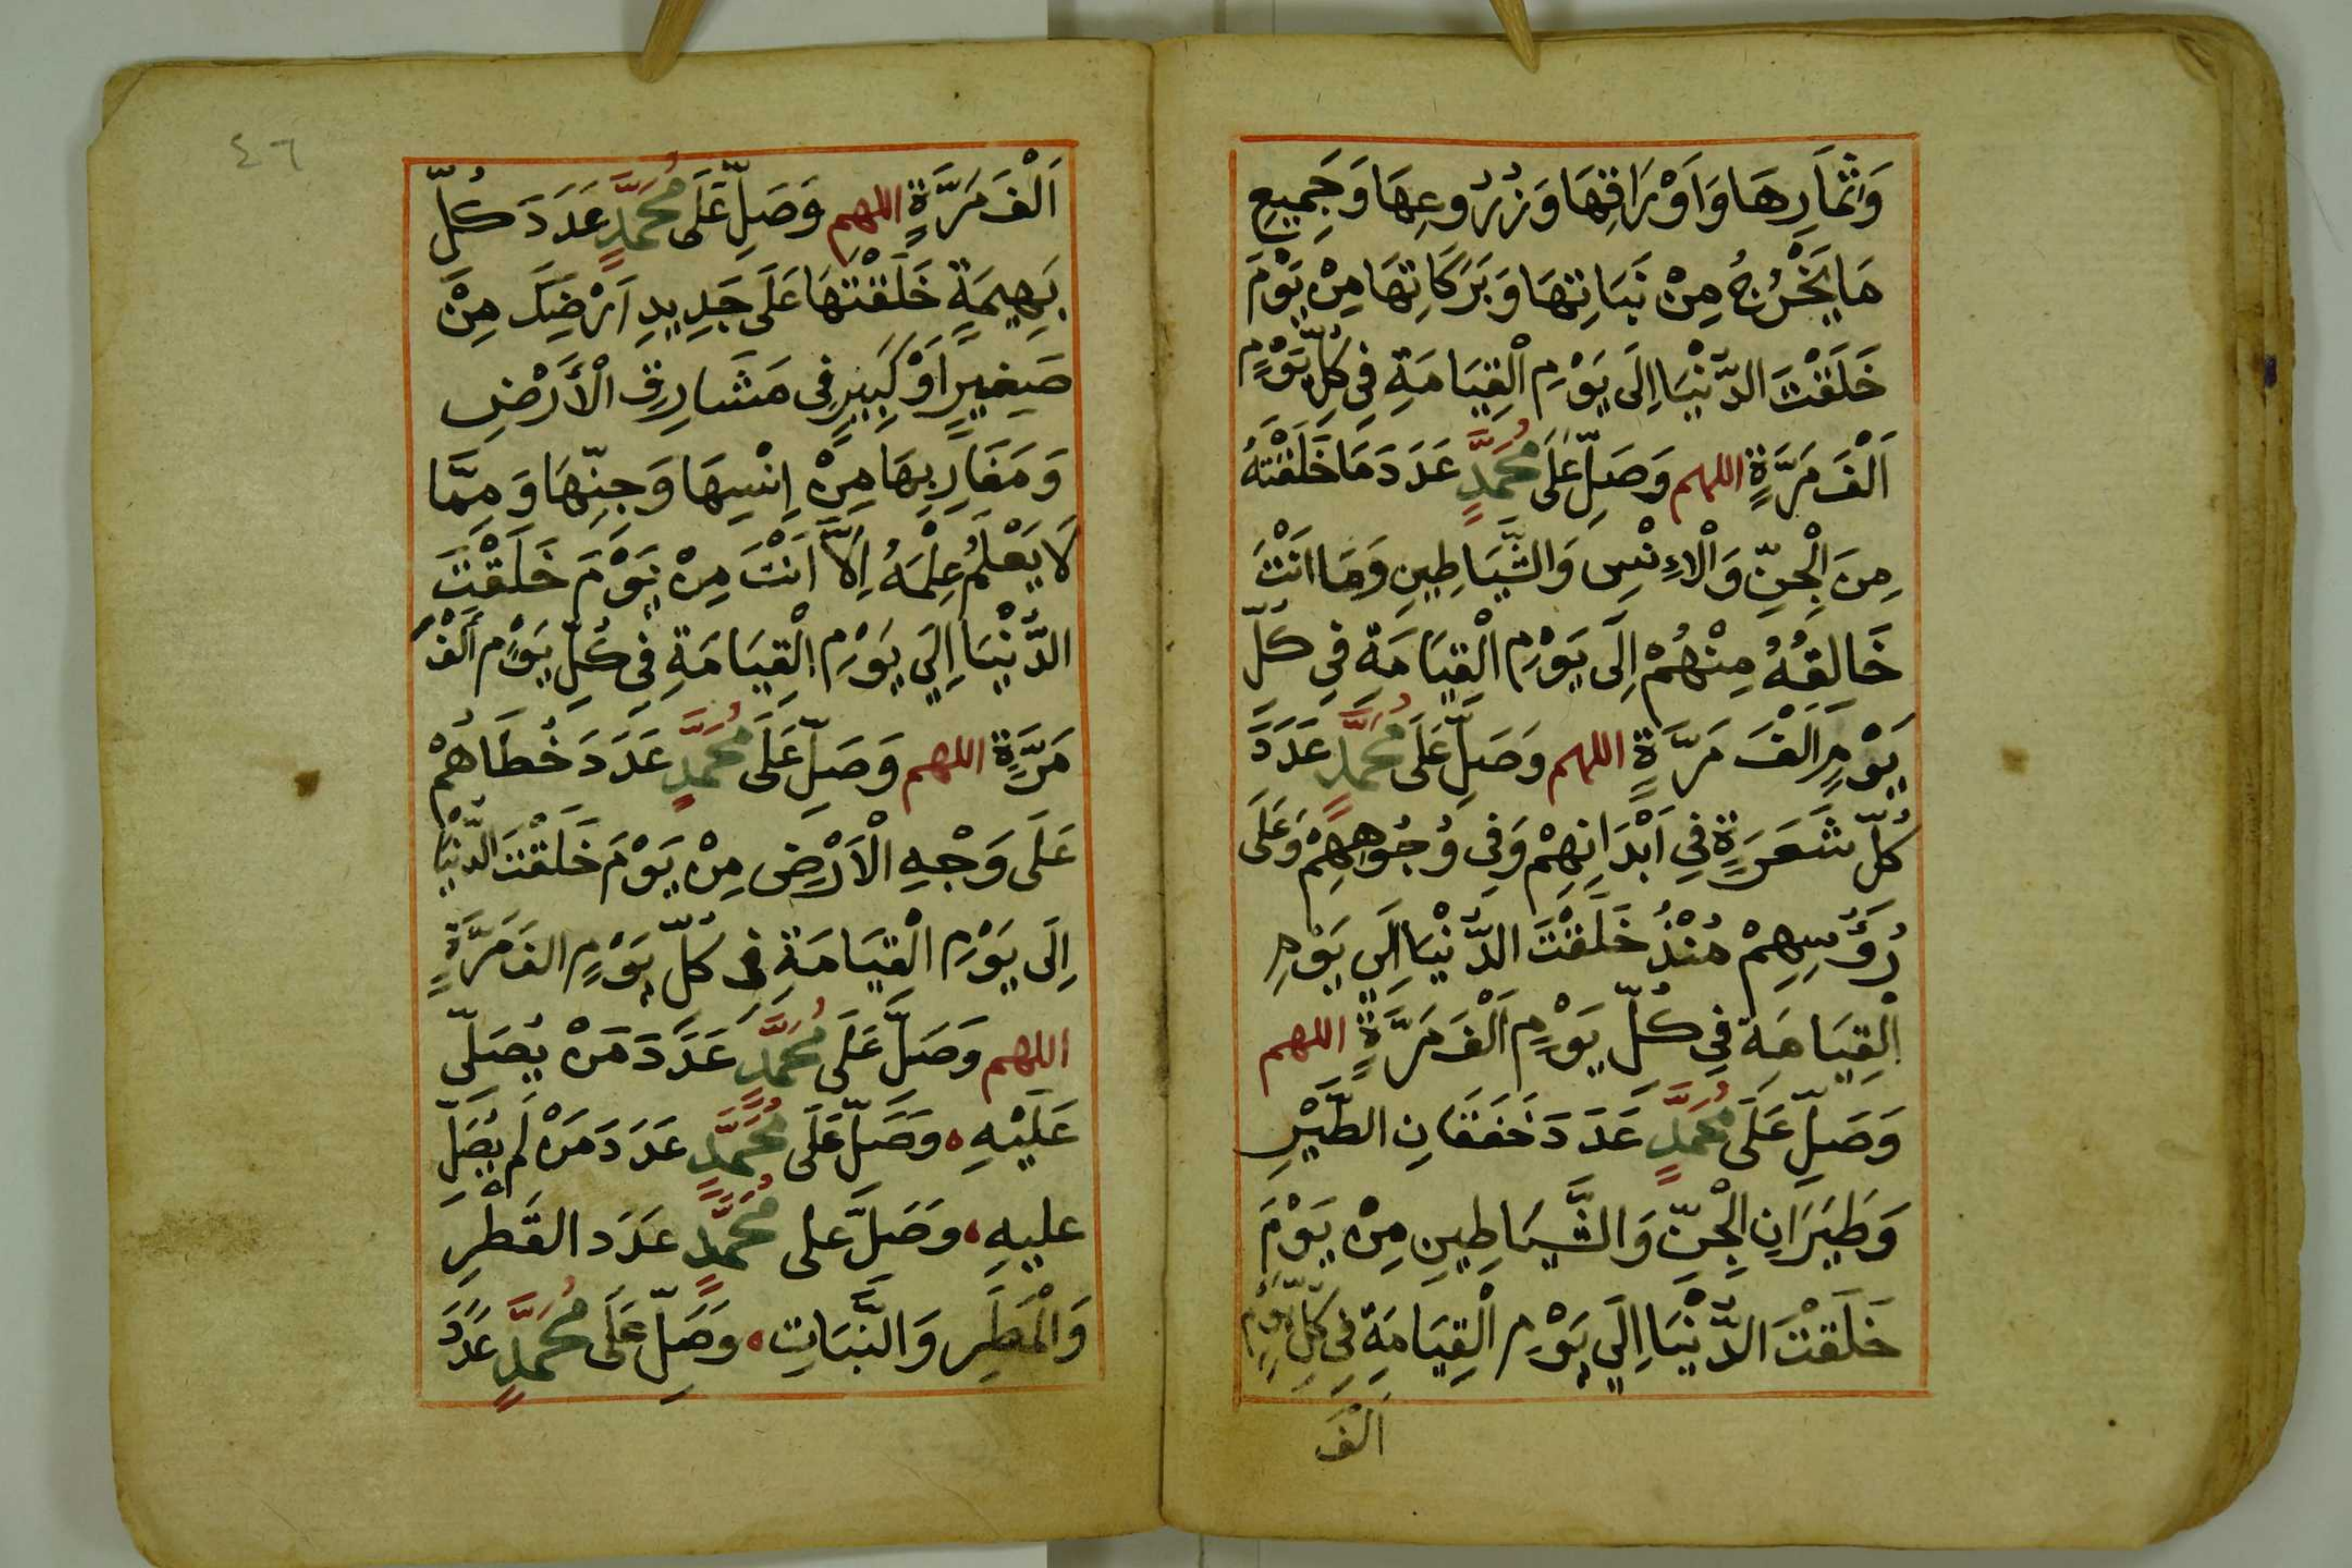 وَاَثْمَارِهَا وَاَوْرَاقِهَا وَزُرُوعِهَا وَجَمِيعِ
مَا يَخْرُجُ مِنْ نَبَاتِهَا وَبَرَكَاتِهَا مِنْ يَوْمَ
خَلَقْتَ الدُّنْيَا اِلَى يَوْمِ الْقِيَامَةِ فِي كُلِّ يَوْمٍ
اَلْفَ مَرَّةٍ اللهم وَصَلِّ عَلَى مُحَمَّدٍ عَدَدَ مَا خَلَقْتَهُ
مِنَ الْجِنِّ وَالْاِءِنْسِ وَالشَّيَاطِينِ وَمَا اَنْتَ
خَالِقُهُ مِنْهُمْ اِلَى يَوْمِ الْقِيَامَةِ فِي كُلِّ
يَوْمٍ اَلْفَ مَرَّةٍ اللهم وَصَلِّ عَلَى مُحَمَّدٍ عَدَدَ
كُلِّ شَعَرَةٍ فِي اَبْدَانِهِمْ وَفِي وُجُوهِهِمْ وَعَلَى
رُؤُسِهِمْ مُنْذُ خَلَقْتَ الدُّنْيَا اِلَى يَوْمِ
الْقِيَامَةِ فِي كُلِّ يَوْمٍ اَلْفَ مَرَّةٍ اللهم
وَصَلِّ عَلَى مُحَمَّدٍ عَدَدَ خَفَقَانِ الطَّيْرِ
وَطَيَرَانِ الْجِنِّ وَالشَّيَاطِينِ مِنْ يَوْمَ
خَلَقْتَ الدُّنْيَا اِلَى يَوْمِ الْقِيَامَةِ فِي كُلِّ يَوْمٍ
اَلْفَ
٤٦
اَلْفَ مَرَّةٍ اللهم وَصَلِّ عَلَى مُحَمَّدٍ عَدَدَ كُلِّ
بَهِيمَةٍ خَلَقْتَهَا عَلَى جَدِيدِ اَرْضِكَ مِنْ
صَغِيرٍ اَوْ كَبِيرٍ فِي مَشَارِقِ الْأَرْضِ
وَمَغَارِبِهَا مِنْ اِنْسِهَا وَجِنِّهَا وَمِمَّا
لَا يَعْلَمُ عِلْمَهُ اِلَّا اَنْتَ مِنْ يَوْمَ خَلَقْتَ
الدُّنْيَا اِلَى يَوْمِ الْقِيَامَةِ فِي كُلِّ يَوْمٍ اَلْفَ
مَرَّةٍ اللهم وَصَلِّ عَلَى مُحَمَّدٍ عَدَدَ خُطَاهُمْ
عَلَى وَجْهِ الْاَرْضِ مِنْ يَوْمَ خَلَقْتَ الدُّنْيَا
اِلَى يَوْمِ الْقِيَامَةِ فِي كُلِّ يَوْمٍ الفَ مَرَّةٍ
اللهم وَصَلِّ عَلَى مُحَمَّدٍ عَدَدَ مَنْ يُصَلِّى
عَلَيْهِ ، وَصَلِّ عَلَى مُحَمَّدٍ عَدَدَ مَنْ لَمْ يُصَلِّ
عليهِ ، وَصَلِّ على مُحَمَّدٍ عَدَدَ القَطْرِ
وَالْمَطَرِ وَالنَّبَاتِ ، وَصَلِّ عَلَى مُحَمَّدٍ عَدَدَ